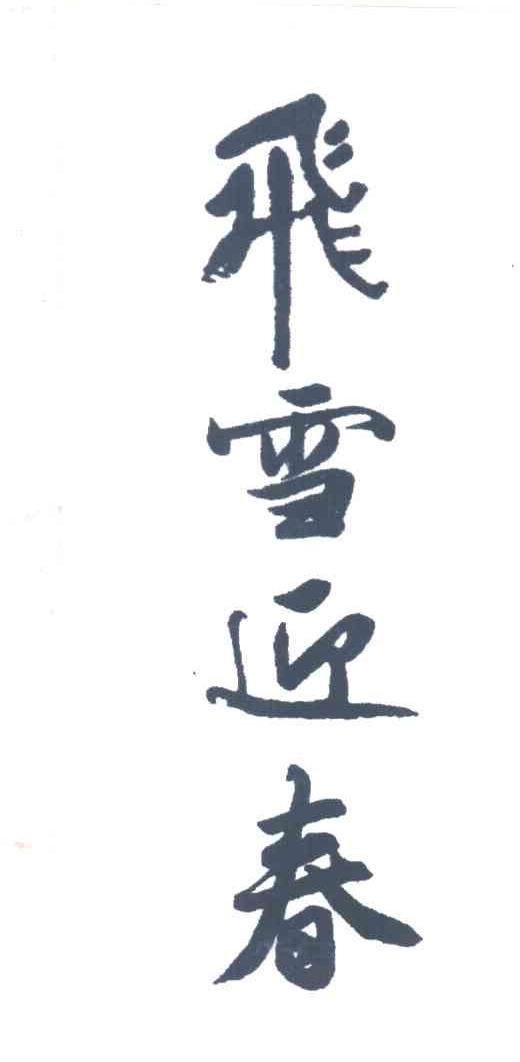 飛雪迎春